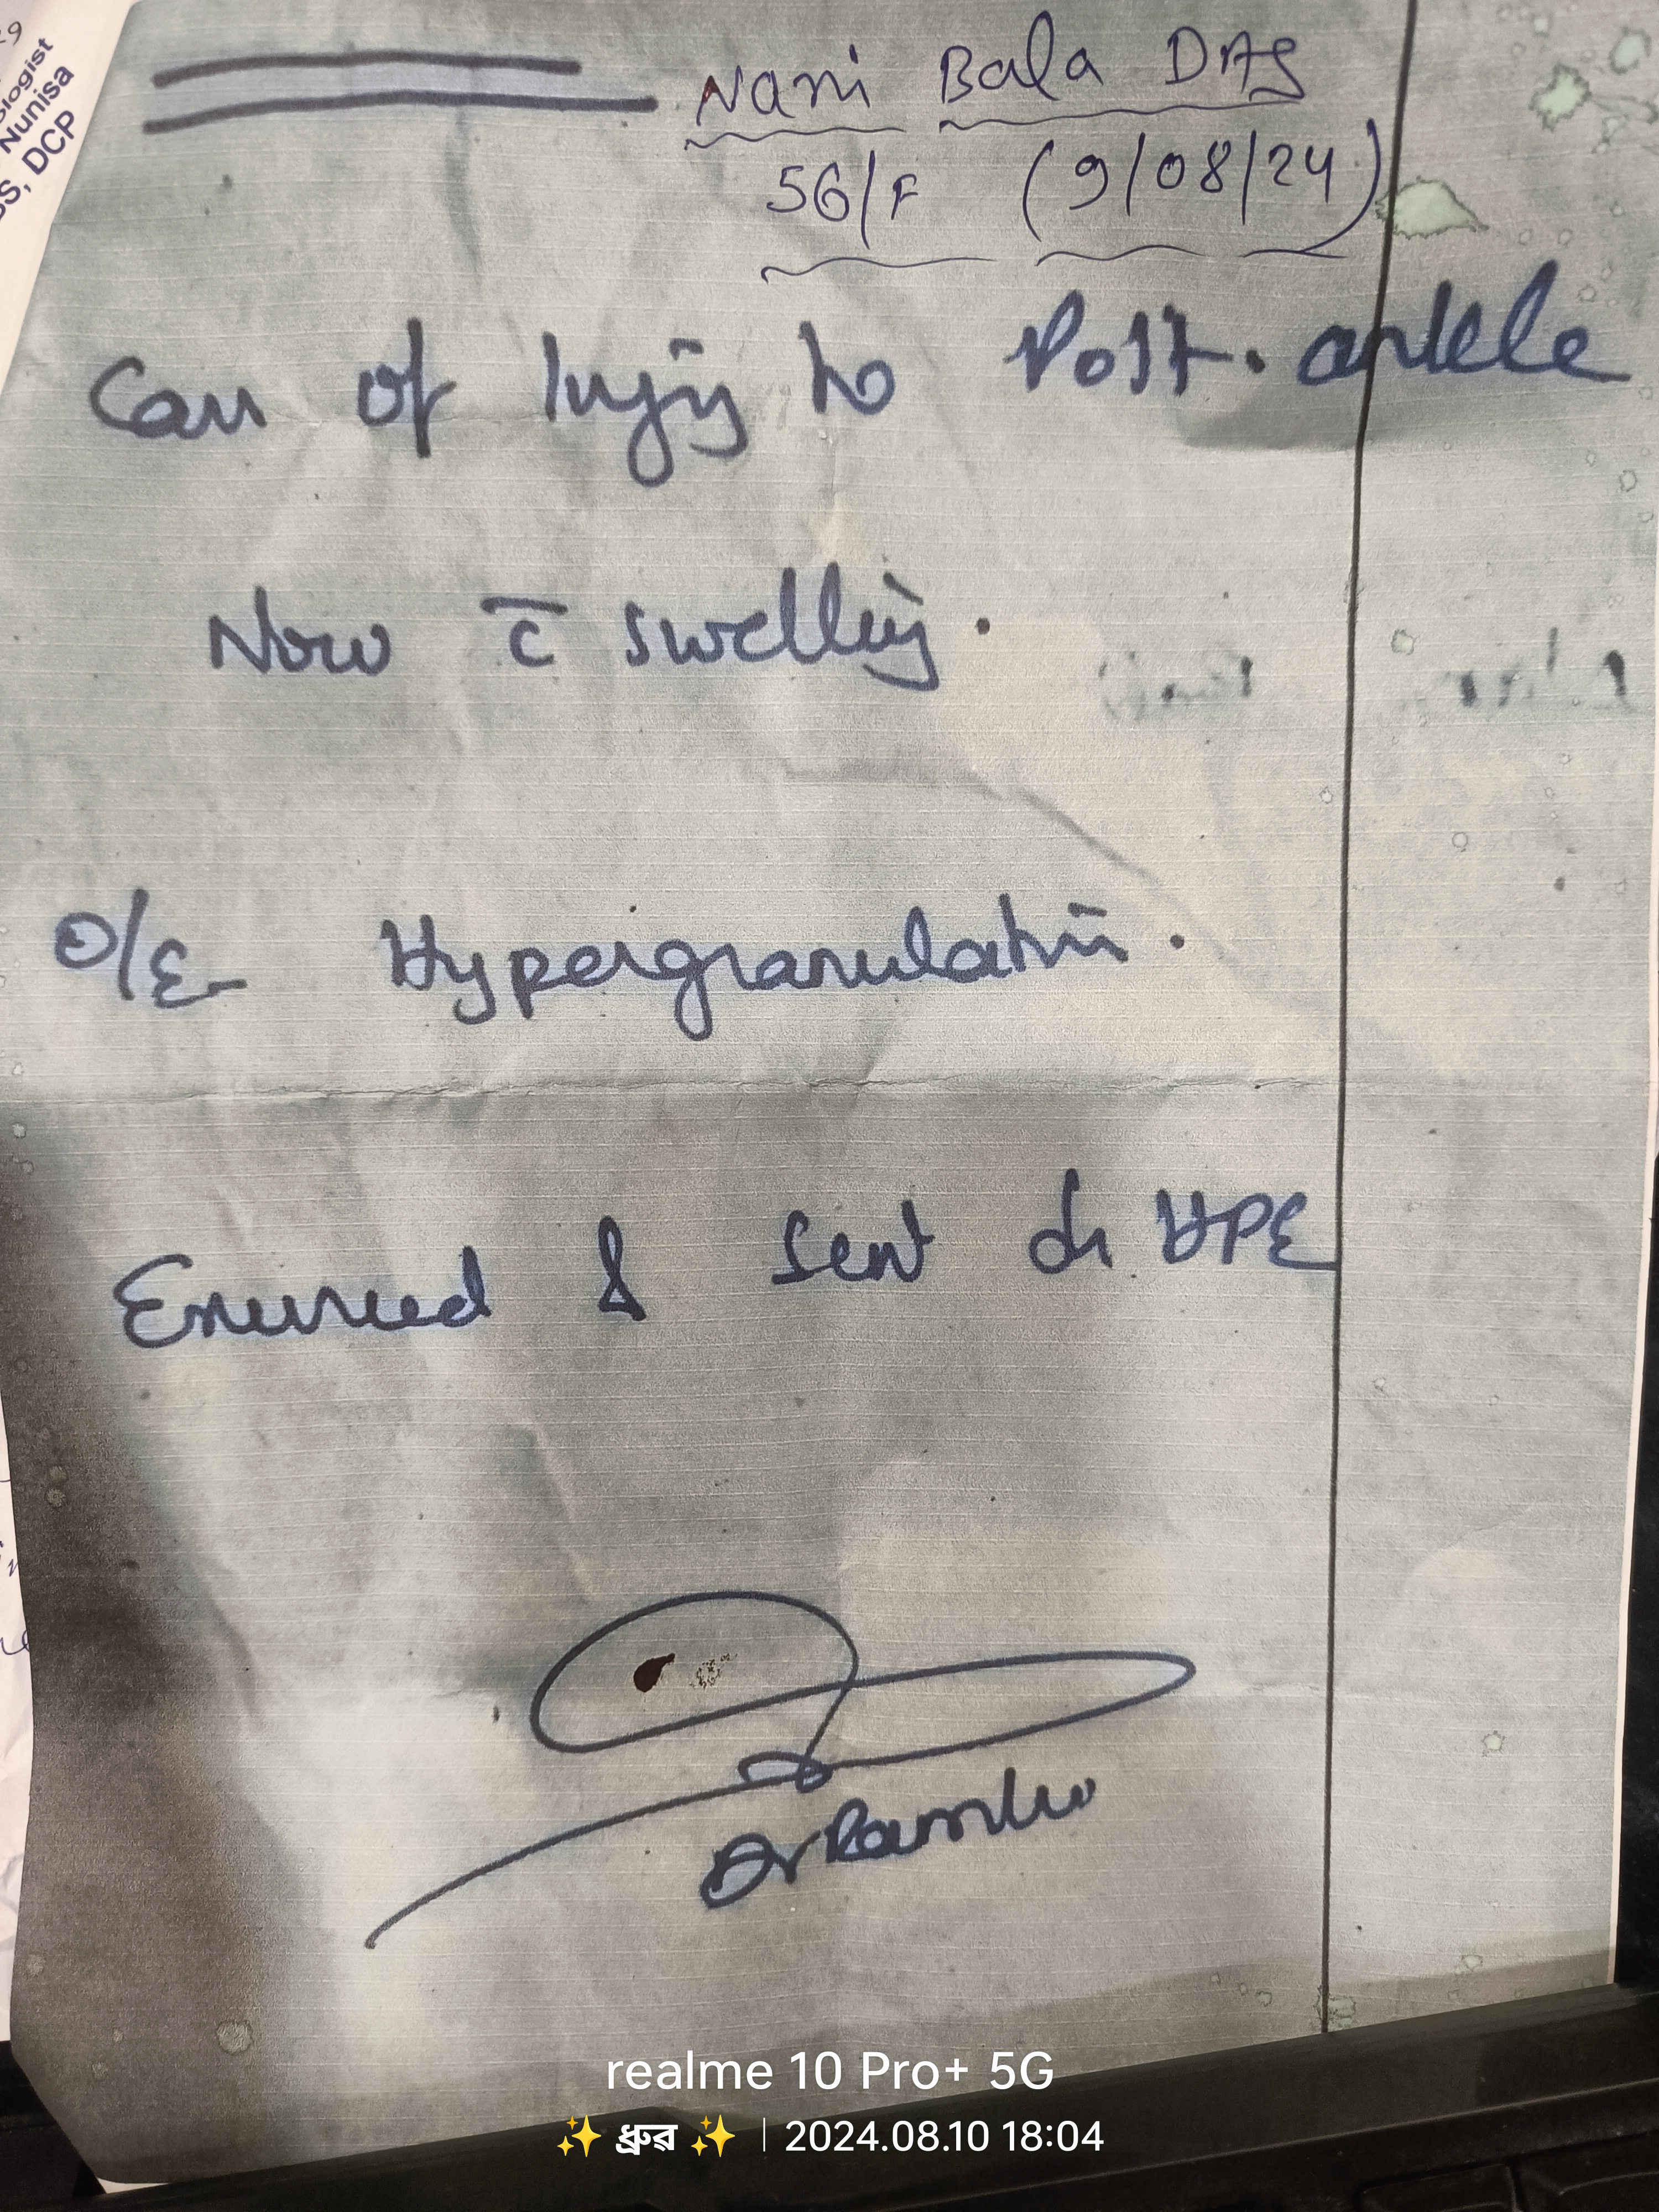 ologist
Nunisa
SS, DCP
Nani Bala DAS
56/F (9/08/24)
Case of Injury to Post. ankle
Now c̄ swelling.
O/E- Hypergranulation.
Excised & sent for HPE
Dr
realme 10 Pro+ 5G
✨ ধ্রুৱ ✨ | 2024.08.10 18:04